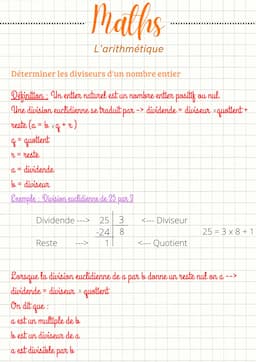 Maths
L'arithmétique
Déterminer les diviseurs d'un nombre entier
Définition : Un entier naturel est un nombre entier positif ou nul.
Une division euclidienne se traduit par -> dividende = diviseur × quotient +
reste (a = b × q + r)
q = quotient
r = reste
a = dividende
b = diviseur
Exemple : Division euclidienne de 25 par 3
Dividende ---> 25 3 <--- Diviseur
-24 8 25 = 3 x 8 + 1
Reste ---> 1 <--- Quotient
Lorsque la division euclidienne de a par b donne un reste nul on a -->
dividende = diviseur × quotient
On dit que :
a est un multiple de b
b est un diviseur de a
a est divisible par b